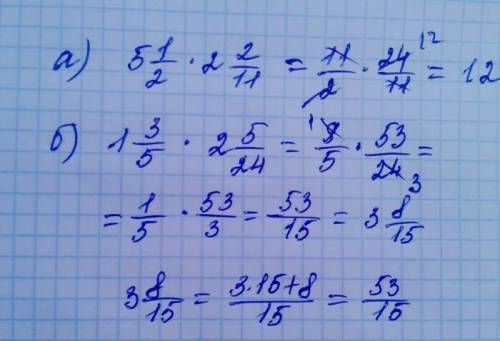 а) 5 1/2 · 2 2/11 = 11/2 · 24/11 12 = 12
б) 1 3/5 · 2 5/24 = 1 8/5 · 53/24 3 =
= 1/5 · 53/3 = 53/15 = 3 8/15
3 8/15 = 3·15+8/15 = 53/15